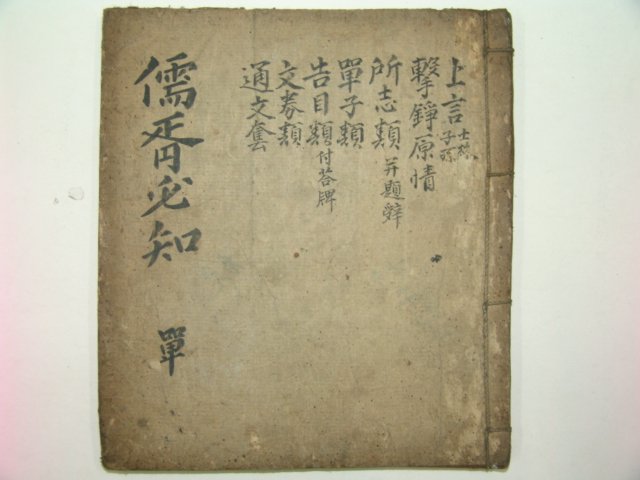 上言 士林 子孫
擊錚原情
所志類 并題辭
單子類
告目類 付答牌
文券類
通文套
儒胥必知 單